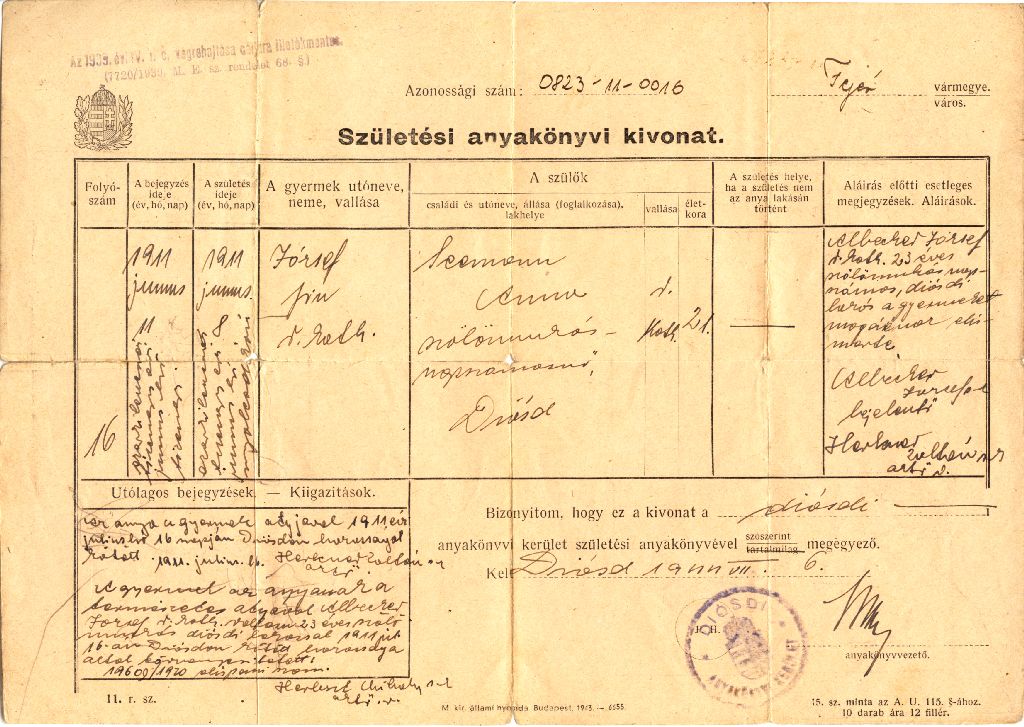 Az 1939. évi IV. t. c. végrehajtása céljára illetékmentes.
(7720/1939. M. E. sz. rendelet 68. §)
Azonossági szám: 0823-11-0016
Fejér vármegye.
város.
Születési anyakönyvi kivonat.
Folyó-
szám
A bejegyzés
ideje
(év, hó, nap)
A születés
ideje
(év, hó, nap)
A gyermek utóneve,
neme, vallása
A szülők
családi és utóneve, állása (foglalkozása),
lakhelye
vallása
élet-
kora
A születés helye,
ha a születés nem
az anya lakásán
történt
Aláírás előtti esetleges
megjegyzések. Aláírások.
16
1911
junius
11
1911
junius
8
József
fiu
r. kath.
Seemann
Anna
szőlőmunkás-
napszámosnő
Diósd
r.
kath.
21
Albecker József
r. kath. 23 éves
szőlőmunkás nap-
számos, diósdi
lakos a gyermeket
magáénak elis-
merte.
Albecker
József
bejelentő
Herbszt
Zoltán
Utólagos bejegyzések. — Kiigazítások.
az anya a gyermek atyjával 1911. évi
julius hó 16 napján Diósdon házasságot
kötött. 1911. julius 16. Herbszt Zoltán
A gyermek az anyának a
természetes atyával Albecker
József r. kath. vallásu 23 éves szőlő
munkás diósdi lakossal 1911 jul.
16-án Diósdon kötött házassága
által törvényesittetett.
Herbszt Mihály
Bizonyítom, hogy ez a kivonat a diósdi
anyakönyvi kerület születési anyakönyvével szószerint
tartalmilag megegyező.
Kelt Diósd 1944 VII. 6.
DIÓSDI
ANYAKÖNYVI KERÜLET
P. H.
anyakönyvvezető.
11. r. sz.
M. kir. állami nyomda, Budapest, 1943. — 6555.
15. sz. minta az A. U. 115. §-ához.
10 darab ára 12 fillér.